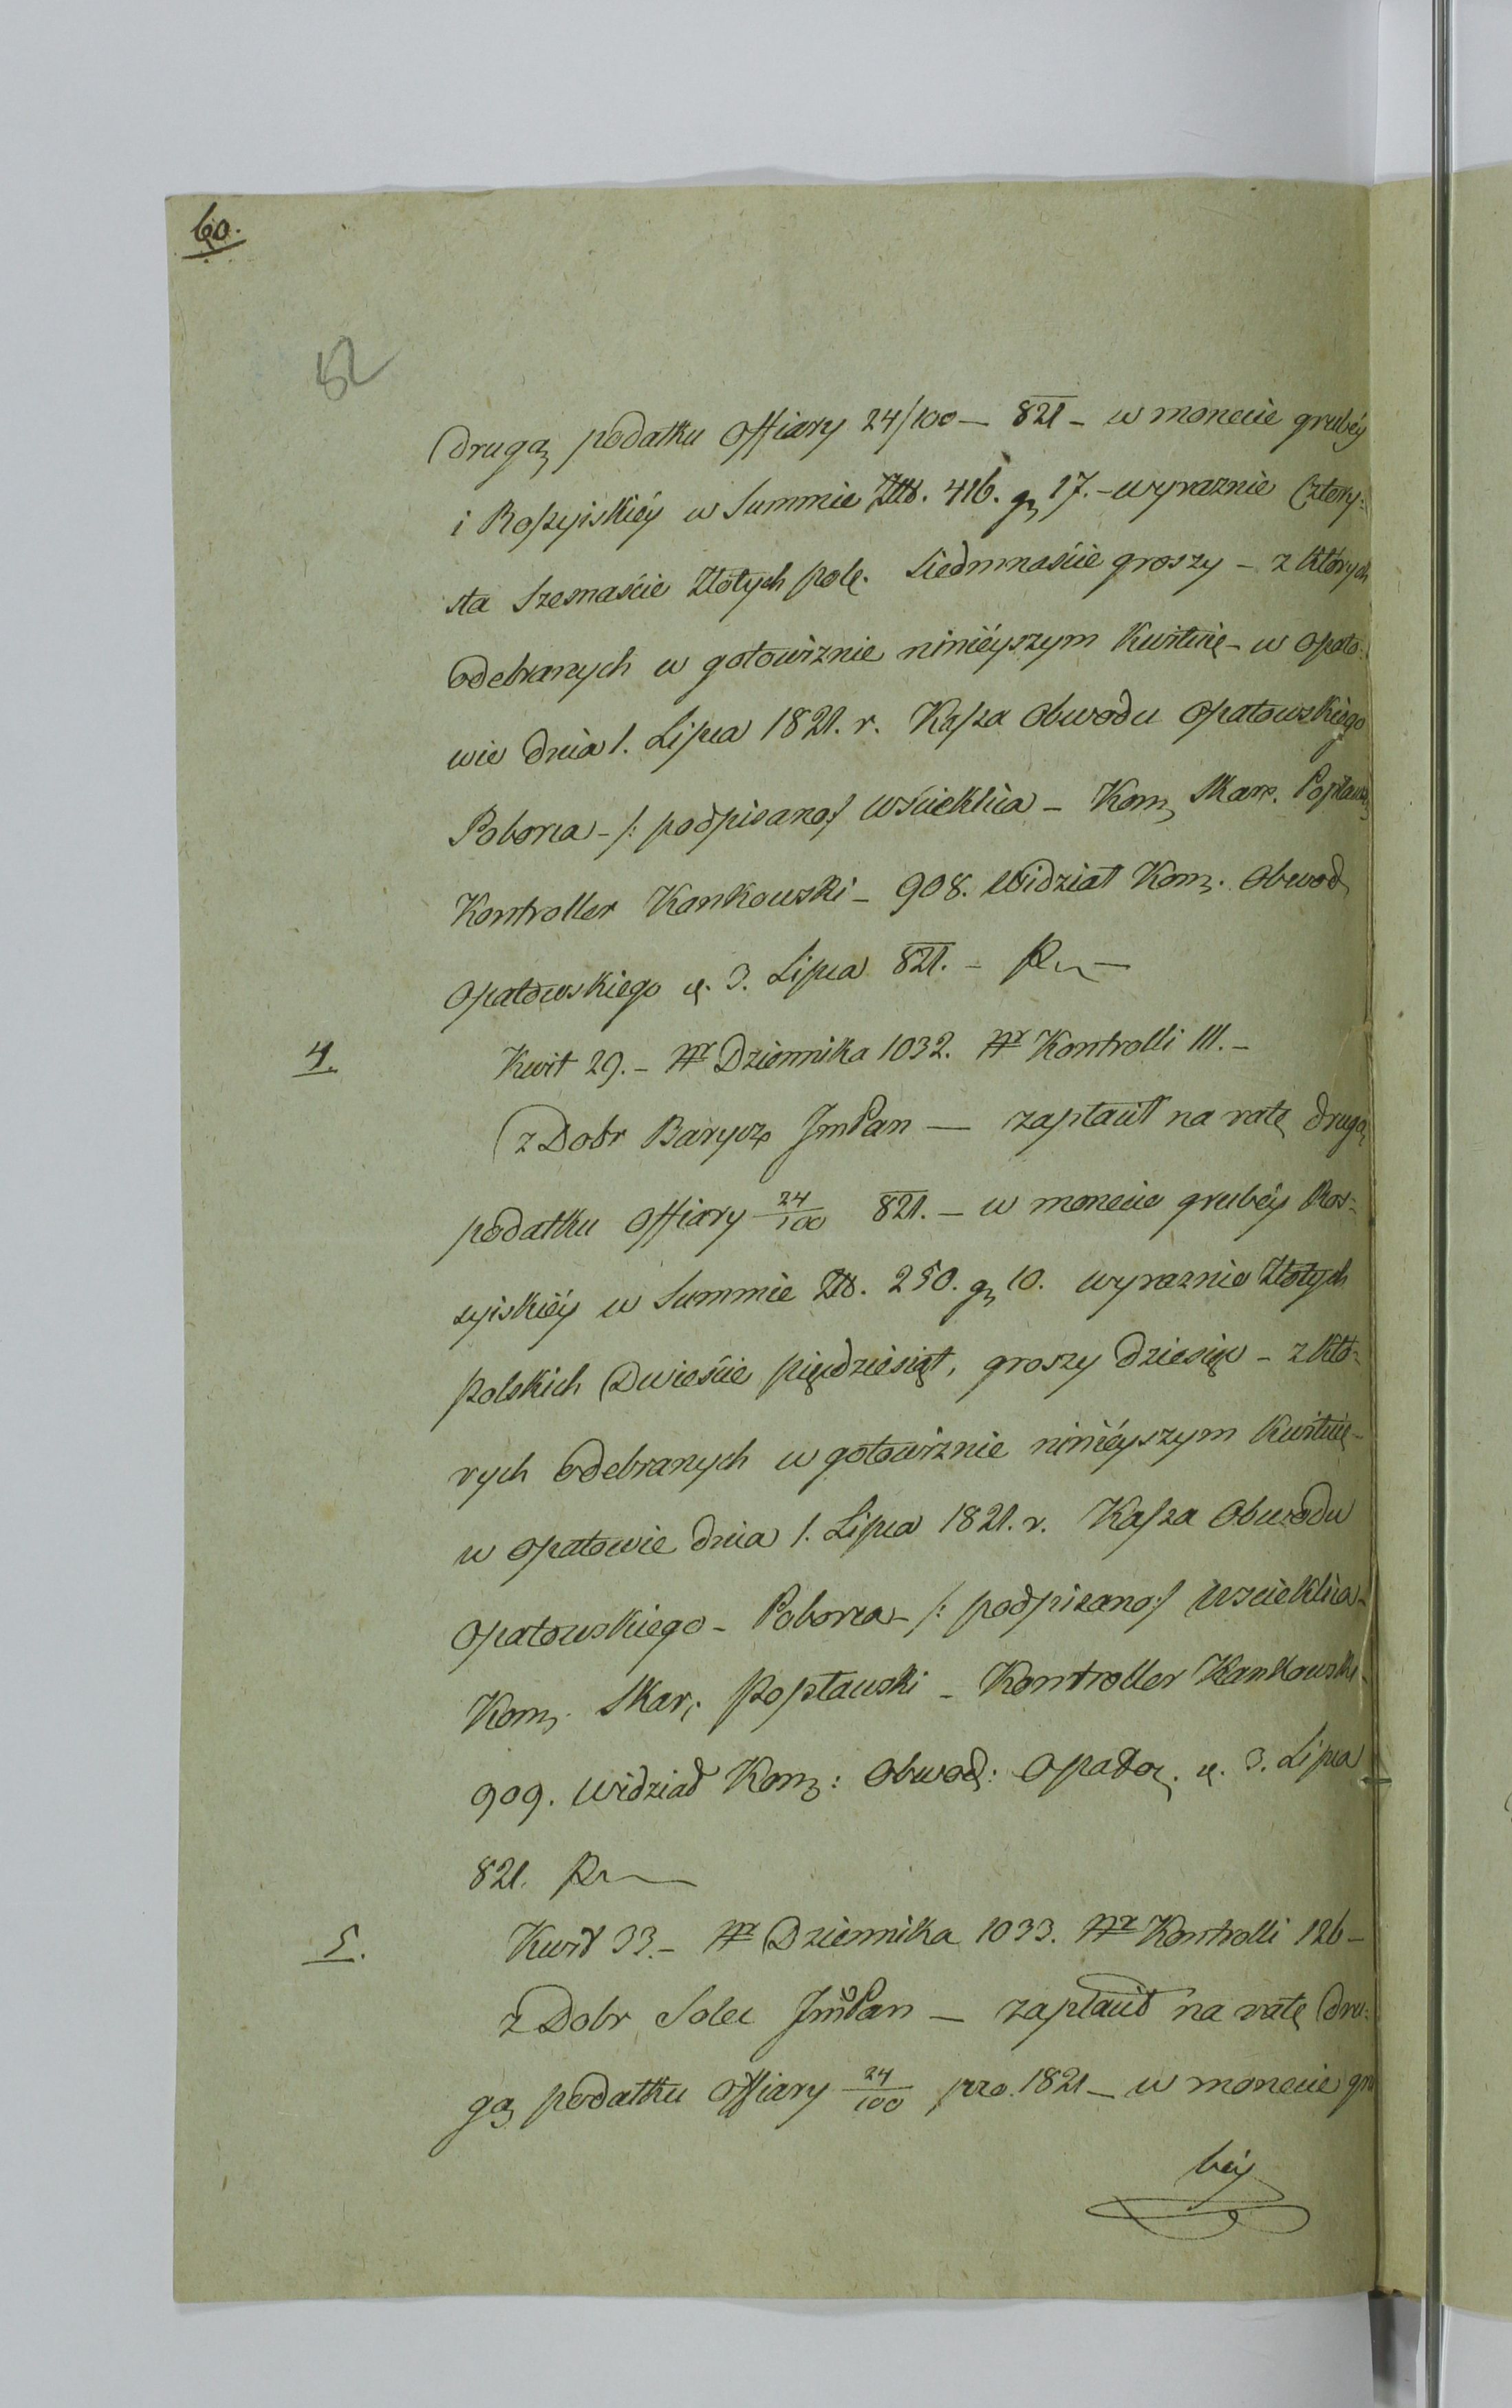 60.
52
drugą podatku Offiary 24/100 — 821 — w monecie grubéy
i Roszyiskiéy w Summie Złł. 416. g 17. — wyraznie Cztery:
sta Szesnaście Złotych pols. Siedmnaście groszy — z których
odebranych w gotowiznie ninieyszym Kwituię — w Opato:
wie dnia 1. Lipca 1821. r. Kassa Obwodu Opatowskiego
Poborca — /: podpisano:/ Wścieklica — Kom, Skar.
Kontroller Kankowski — 908. Widział Kom. Obwod
Opatowskiego d. 3. Lipca 821. —
4. Kwit 29. — Nr Dziennika 1032. Nr Kontrolli 111. —
z Dobr Barycz JmPan — zapłacił na ratę drugą
podatku Offiary 24/100 821. — w monecie grubéy Ros:
syiskiéy w Summie Złł. 250. g 10. wyraznie Złotych
polskich Dwieście pięćdziesiąt, groszy dziesięć — z któ:
rych odebranych w gotowiznie ninieyszym Kwituię —
w Opatowie dnia 1. Lipca 1821. r. Kassa Obwodu
Opatowskiego — Poborca — /: podpisano:/ Wscieklica —
Kom, Skar, Popławski — Kontroller Kankowski —
909. Widział Kom: Obwod: Opato. d. 3. Lipca
821.
5. Kwit 33. — Nr Dziennika 1033. Nr Kontrolli 126 —
z Dobr Solec JmPan — zapłacił na ratę dru:
gą podatku Offiary 24/100 pro. 1821 — w monecie gru
béy